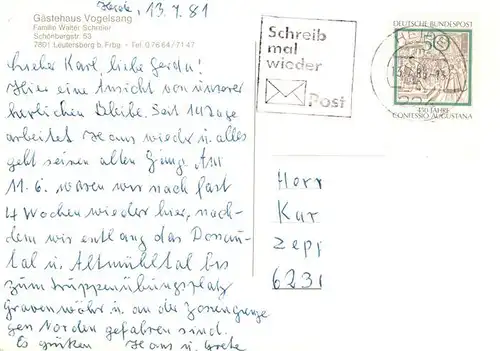 13.7.81
Gästehaus Vogelsang
Familie Walter Schreier
Schönbergstr. 53
7801 Leutersberg b. Frbg. · Tel. 0 76 64 / 71 47
Schreib
mal
wieder
Post
DEUTSCHE BUNDESPOST
50
450 JAHRE
CONFESSIO AUGUSTANA
Lieber Karl liebe Gerda!
Hier eine Ansicht von unserer
herrlichen Bleibe. Seit 14 Tage
arbeitet Hans wieder u. alles
geht seinen alten Gang. Am
11.6. waren wir nach fast
4 Wochen wieder hier, nach-
dem wir entlang das Donau-
tal u. Altmühltal bis
zum Truppenübungsplatz
Gravenwöhr u. an der Zonengrenze
gen Norden gefahren sind.
Es grüßen Hans u. Grete
Herr
Kar
Zepp
6231